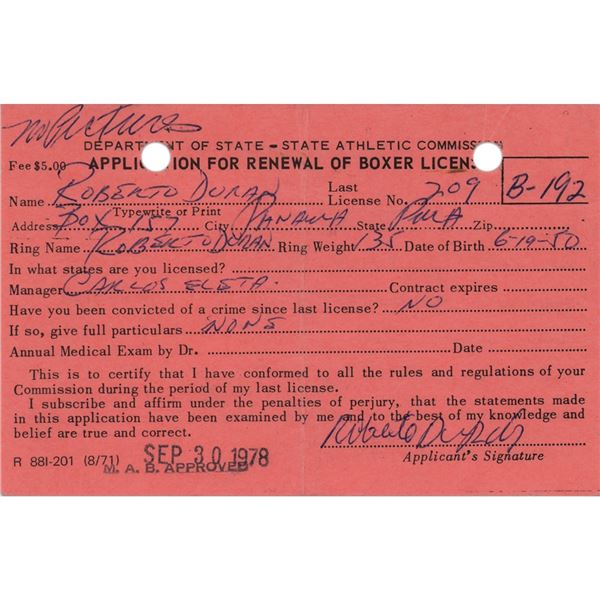 no Pictures
DEPARTMENT OF STATE - STATE ATHLETIC COMMISSION
Fee $5.00 APPLICATION FOR RENEWAL OF BOXER LICENS
Name ROBERTO DURAN Last License No. 209 B-192
Typewrite or Print
Address BOX 157 City PANAMA State Zip
Ring Name ROBERTO DURAN Ring Weight 135 Date of Birth 6-19-50
In what states are you licensed?
Manager CARLOS ELETA. Contract expires
Have you been convicted of a crime since last license? NO
If so, give full particulars NONE
Annual Medical Exam by Dr. Date
This is to certify that I have conformed to all the rules and regulations of your
Commission during the period of my last license.
I subscribe and affirm under the penalties of perjury, that the statements made
in this application have been examined by me and to the best of my knowledge and
belief are true and correct.
Roberto Duran
R 881-201 (8/71) SEP 30 1978 Applicant's Signature
M. A. B. APPROVED